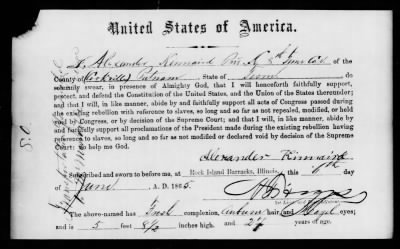 United States of America.
I, Alexander Kinnaird Priv. K 8th Tenn Cav
County of (Cookville) Putnam, State of Tenn do
solemnly swear, in presence of Almighty God, that I will henceforth faithfully support,
protect, and defend the Constitution of the United States, and the Union of the States thereunder;
and that I will, in like manner, abide by and faithfully support all acts of Congress passed during
the existing rebellion with reference to slaves, so long and so far as not repealed, modified, or held
void by Congress, or by decision of the Supreme Court; and that I will, in like manner, abide by
and faithfully support all proclamations of the President made during the existing rebellion having
reference to slaves, so long and so far as not modified or declared void by decision of the Supreme
Court: so help me God.
Alexander Kinnaird
Subscribed and sworn to before me, at Rock Island Barracks, Illinois, this day
June A. D. 1865.
The above-named has Fresh complexion, Auburn hair, and Hazel eyes;
and is 5 feet 8½ inches high, and 27
years of age.